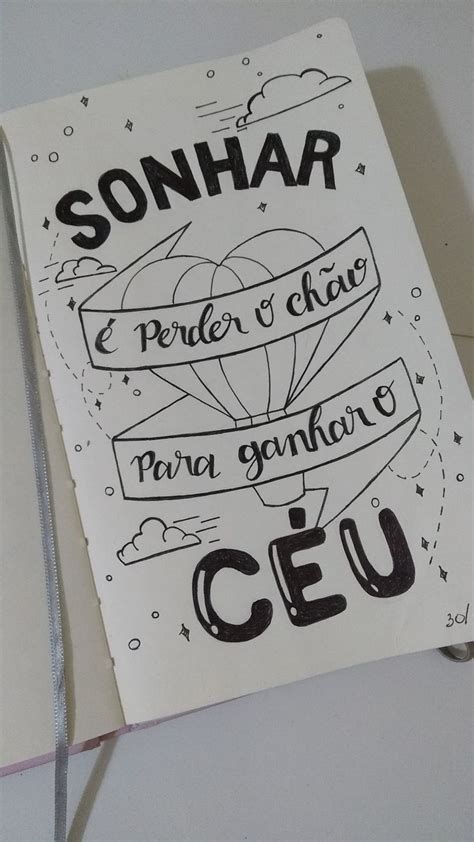 SONHAR
é Perder o chão
Para ganhar o
CÉU
30/